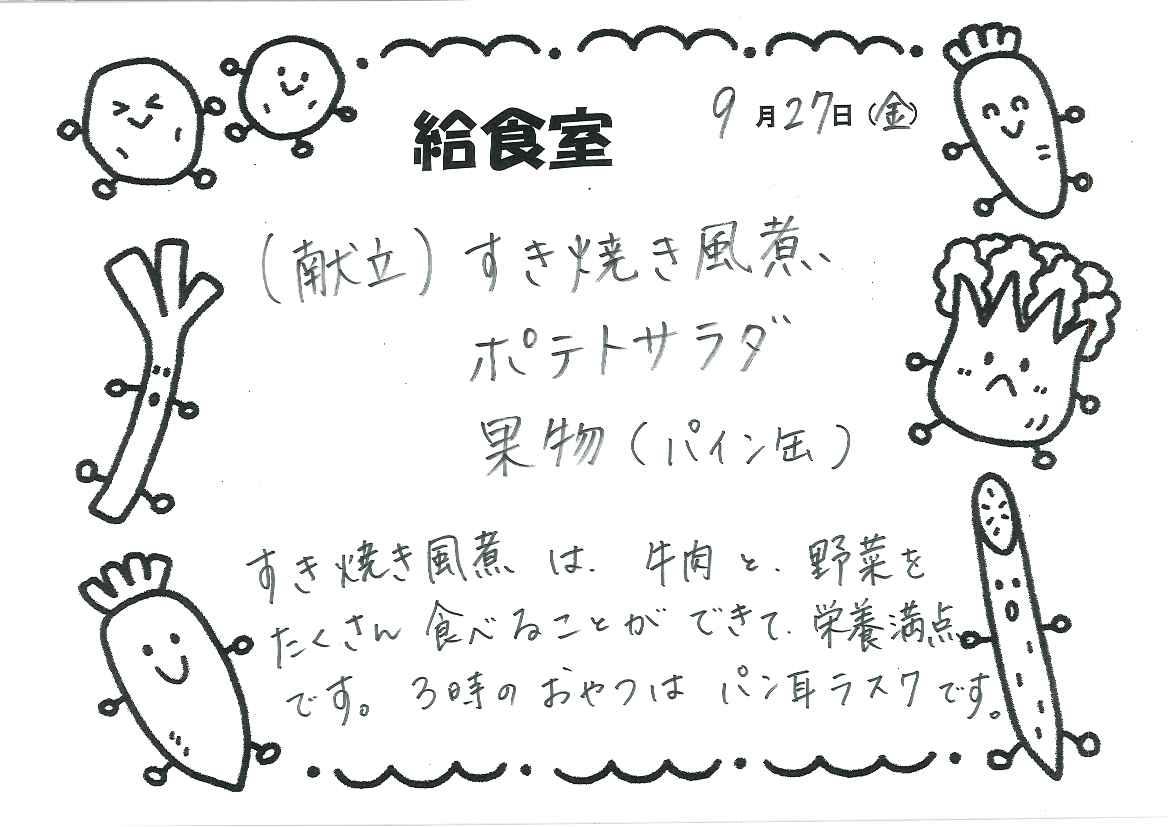 給食室
9月27日(金)
(献立)すき焼き風煮
ポテトサラダ
果物(パイン缶)
すき焼き風煮は、牛肉と、野菜を
たくさん食べることができて、栄養満点
です。3時のおやつはパン耳ラスクです。